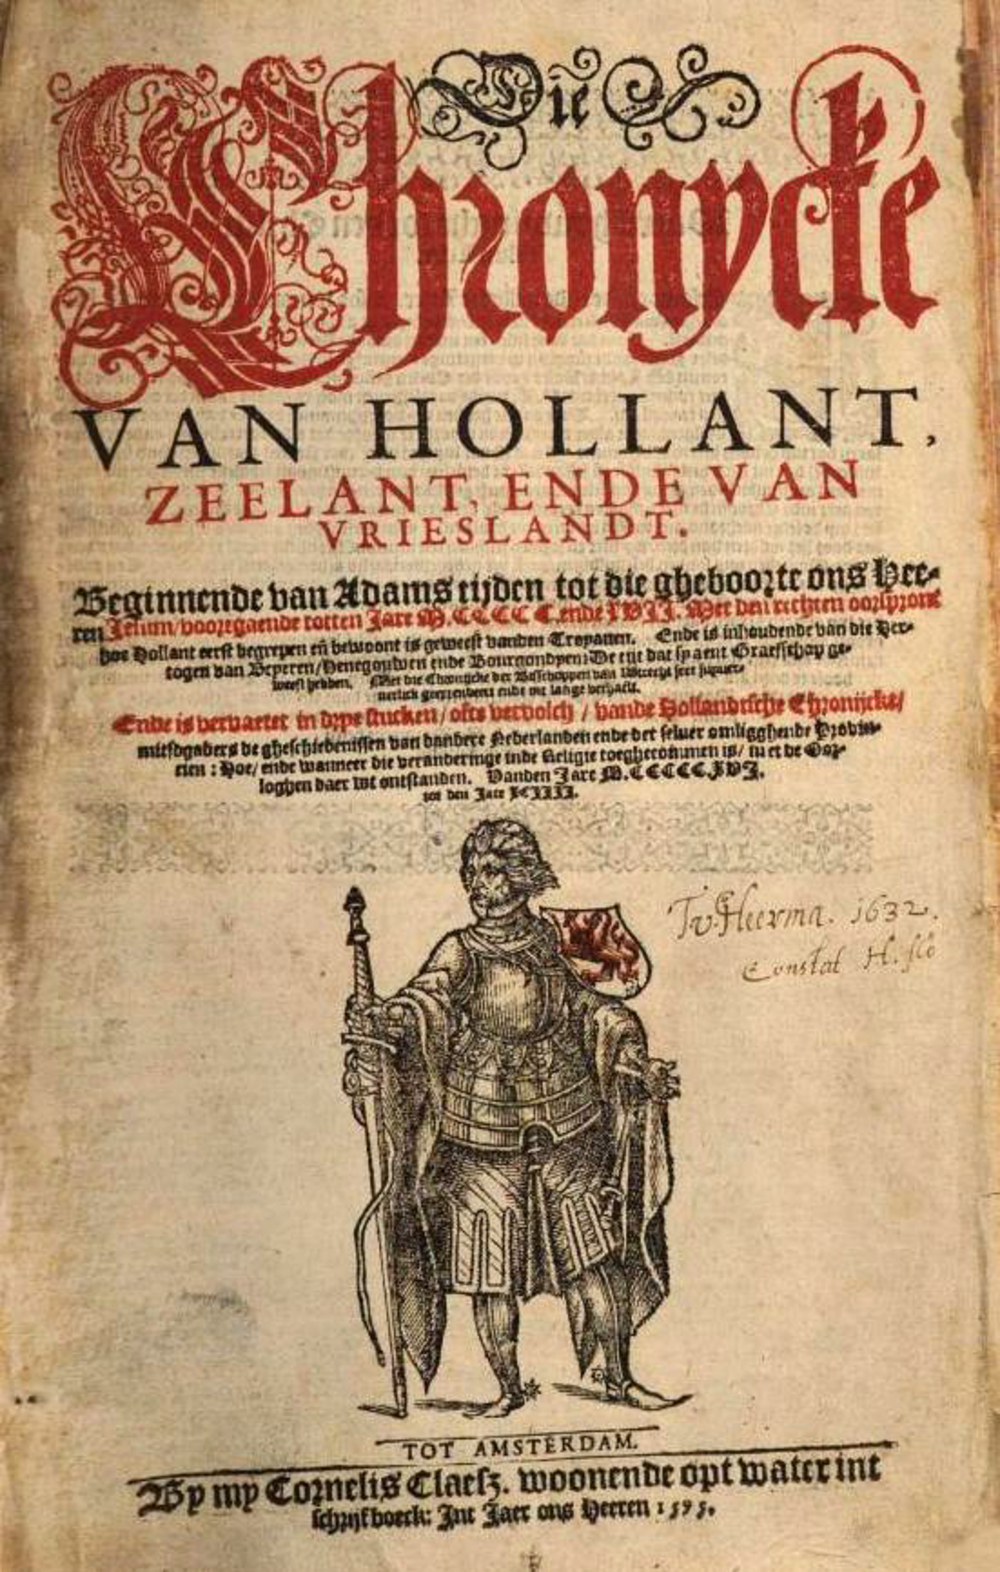 Die
Chronycke
VAN HOLLANT,
ZEELANT, ENDE VAN
VRIESLANDT.
Beginnende van Adams tijden tot die gheboorte ons Hee-
ren Jesum/ voortgaende totten Jare M.CCCCC.ende XVII. Met den rechten oorspronc
hoe Hollant eerst begrepen eñ bewoont is geweest vanden Troyanen. Ende is inhoudende van die Her-
togen van Beyeren/ Henegouwen ende Bourgondyen: De tijt dat sy aent Graefschap ge-
weest hebben. Met die Chronijcke der Bisschoppen van Utrecht seer
ende int lange verhaelt.
Ende is vervaetet in drye stucken/ ofte vervolch/ vande Hollandtsche Chronijcke/
mitsdgaders de gheschiedenissen van dandere Nederlanden ende der selver omligghende Provin-
cien: Hoe/ ende wanneer die veranderinge inde Religie toeghecommen is/ met de Oor-
loghen daer wt ontstanden. Vanden Jare M.CCCCC.XVI.
tot den Jare XCIIII.
Heerma. 1632.
Constat H. flo
TOT AMSTERDAM.
By my Cornelis Claesz. woonende opt water int
schrijfboeck: Int Jaer ons Heeren 1595.